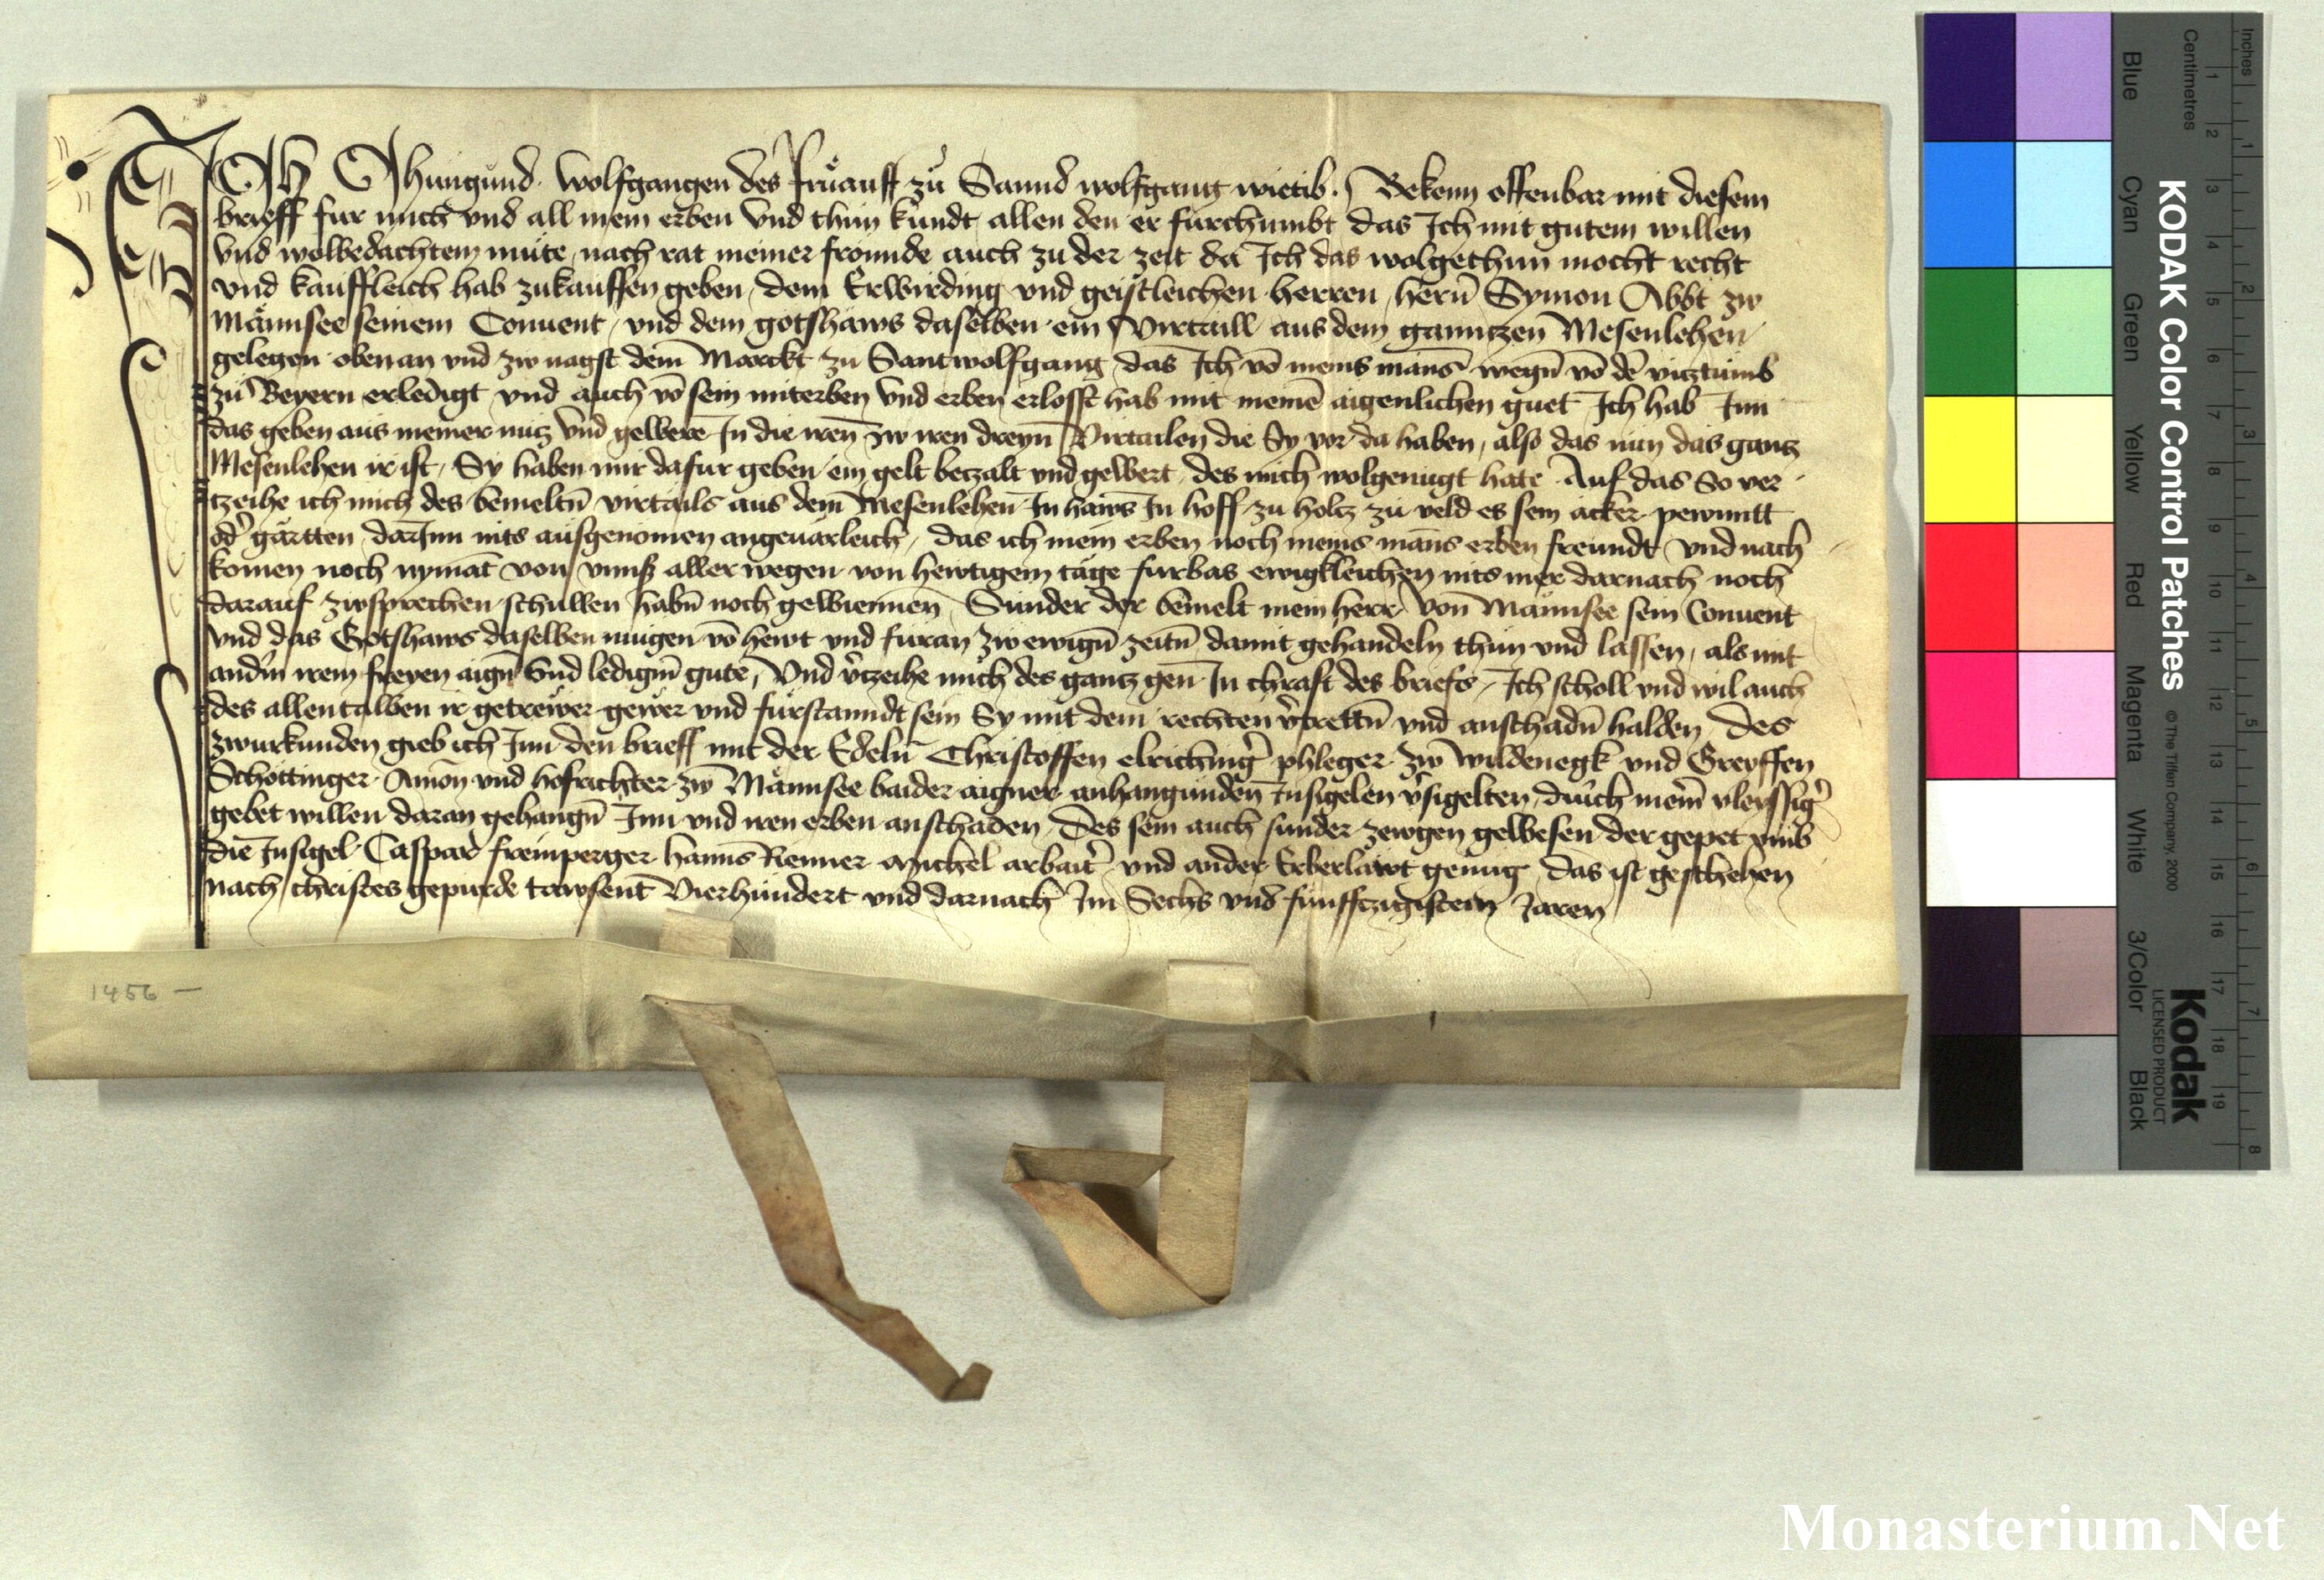 ICH Chungund Wolfgangen des frůauff zů Sannd wolfgang wietib. Bekenn offenbar mit diesem
brieff fur mich vnd all mein erben Vnd thun kundt allen den er furchumbt das Ich mit gutem willen
vnd wolbedachtem mute nach rat meiner freunde auch zu der zeit da Ich das wolgethun mocht recht
vnd kauffleich hab zukauffen geben dem Erwirding vnd geistleichen herren hern̄ Symon Abbt zw
Männsee seinem Conuent vnd dem gotshaws daselben ein Virtaill aus dem ganntzen Mesenlehen
gelegen oben an vnd zw nagst dem̄ Marckt zu Santwolfgang das Ich vō meins mans wegn̄ vō dē viztumb
zu Beyern erledigt vnd auch vō sein miterben Vnd erben erlosst hab mit meinē aigenlichen guet Ich hab Inn
das geben aus meiner nutz Vnd gelbere In die iren̄ zw iren dreyn̄ Virtailen die Sy vor da haben, also das nun das gantz
Mesenlehen ir ist, Sy haben mir dafur geben ein gelt betzalt vnd gelbert des mich wolgenugt hate Auf das So ver
tzeihe ich mich des bemeltn̄ virtails aus dem̄ Mesenlehen̄ In haws In hoff zu holtz zu veld es sein äcker pewnntt
od' gärtten darInn nits ausgenomen angeuärleich, das ich mein erben noch meins mans erben freundt vnd nach
komen noch nymāt von vnnß aller wegen von hewtigem tage furbas ewigkleichen nits mer darnach noch
darauf zwsprechen schullen habn̄ noch gelbiennen̄ Sunder der bemelt mein herr von Männsee sein Conuent
vnd das Gotshaws daselben mugen vō hewt vnd furan zw ewign̄ zeitn̄ damit gehandeln thun vnd lassen, als mit
andm̄ irem freyen aign̄ Vnd ledigm̄ gute, Vnd v'tzeihe mich des gantz gen̄ In chraft des briefs, Ich scholl vnd wil auch
des allentalben ir getrewer gewer vnd furstanndt sein Sy mit dem rechten v'trettn̄ vnd anschadn̄ halden Des
zwurkunden gieb ich Inn den brieff mit der Edeln̄ Christoffen elriching' phleger zw wildenegk vnd Greyffen
Schöttinger Amān vnd hofrichter zw Männsee baider aigner anhangunden̄ Insigelen v'sigelten, durch mein̄ vleyssig'
gebet willen daran gehangn̄ Inn vnd iren erben anschaden, Des sein auch sunder zewgen gelbesen der gepet vmb
die Insigel Caspar freinperger hanns Renner Michel arbait' vnd ander Erberläwt genug das ist geschehen
nach christes gepurde tawsent Vierhundert vnd darnach Im Sechs vnd funfftzigistem Jaren
1456 –
Inches
Centimetres
1 2 3 4 5 6 7 8
1 2 3 4 5 6 7 8 9 10 11 12 13 14 15 16 17 18 19
Blue Cyan Green Yellow Red Magenta White 3/Color Black
KODAK Color Control Patches © The Tiffen Company, 2000
Kodak
LICENSED PRODUCT
Monasterium.Net